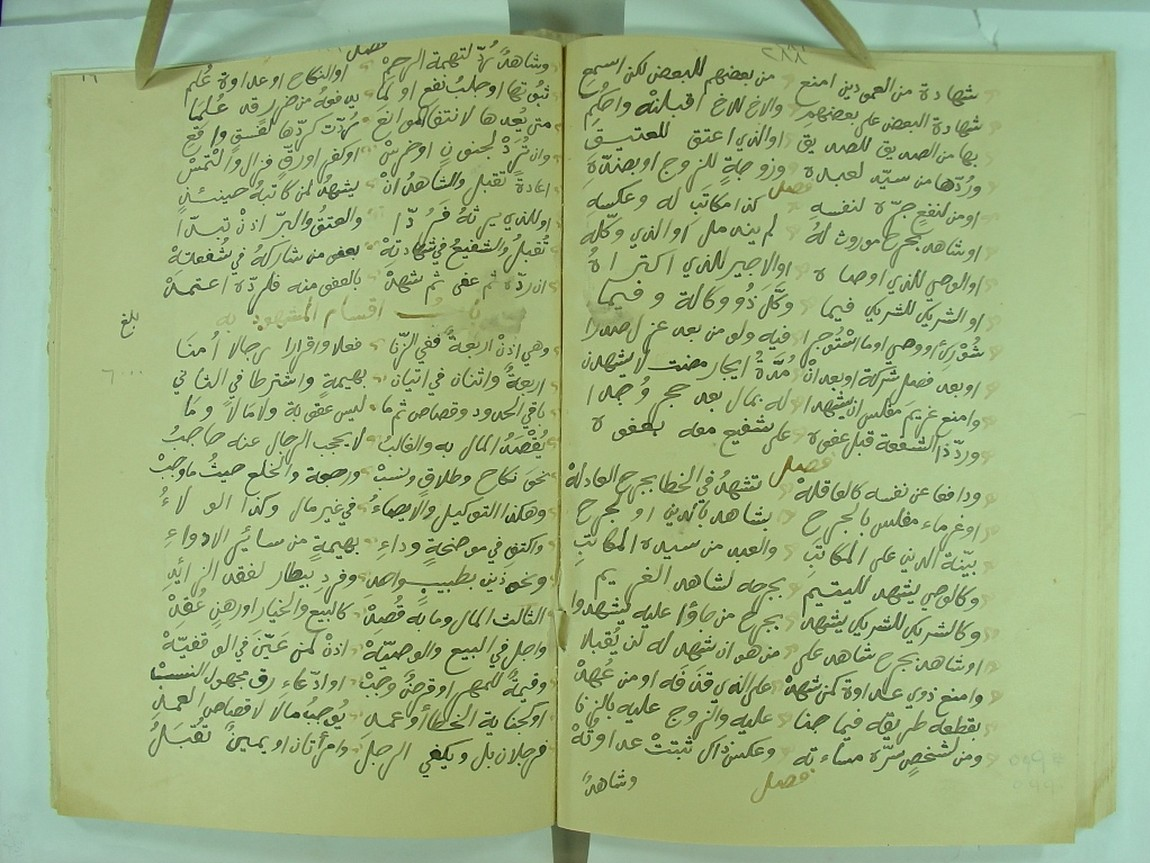 شهادة من العمودين امنع من بعضهم للبعض لكن اسمع
شهادة البعض على بعضهم والاخ للاخ اقبلنه واحكم
بها من الصديق للصديق اوالذي اعتق للعتيق
وردها من سيد لعبده وزوجة للزوج اوبضده
فصل
اومن لنفع جره لنفسه كذا مكاتب له وعكسه
اوشاهد بجرح موروث له لم يندمل اوالذي وكله
اوالوصي للذي اوصاه اوالاجير للذي اكتراه
اوالشريك للشريك فيما وكل ذو وكالة وفيما
شورك اووصي اوما استوجرا فيه ولو من بعد عزل صدرا
اوبعد فصل شركة اوبعد ان مدة ايجار مضت لا يشهدن
وامنع غريم مفلس ان يشهدا له بمال بعد حجر وجدا
ورد ذا الشفعة قبل عفوه على شفيع معه بعفوه
فصل
ودافعا عن نفسه كالعاقلة تشهد في الخطا بجرح العادلة
اوغرماء مفلس بالجرح بشاهد بالدين او لجرح
بينة الدين على المكاتب والعبد من سيده المكاتب
وكالوصي يشهد لليتيم بجرحه لشاهد الغريم
وكالشريك للشريك يشهد بجرح من جاؤا عليه ليشهدوا
اوشاهد بجرح شاهد على من هو ان شهد له لن يقبلا
وامنع ذوي عداوة كمن شهد على الذي قذفه اومن عهد
بقطعه طريقه فيما جنا عليه والزوج عليه بالزنا
ومن لشخص سره مساءته وعكس ذاك تبتت عداوته
فصل
وشاهدا
وشاهدا رد لتهمة الرحم اوالنكاح اوعداوة علم
ثبوتها اوجلب نفع او لما يدفعه من ضرر قد علما
متى يعدها لانتفا الموانع ردت كردها لفسق واقع
وان ترد لجنون اوخرس اوكفر اورق فزال والتمس
اعادة تقبل والشاهد ان يشهد لمن كاتبه حينئذ
اوللذي يرثه فردا والعتق والبر اذن تبدا
تقبل والشفيع في شهادته بعفو من شاركه في شفعته
ان رده ثم عفى ثم شهد بالعفو منه فلرده اعتمد
باب اقسام المشهود به
بلغ
وهي اذن اربعة ففي الزنا فعلا واقرارا رجالا أمنا
اربعة واثنان في اتيان بهيمة واشترطا في الثاني
باقي الحدود وقصاص ثم ما ليس عقوبة ولا مالا وما
يقصد المال به والغالب لا يحجب الرجال عنه حاجب
نحو نكاح وطلاق ونسب ورجعة والخلع حيث ما وجب
وهكذا التوكيل والايصاء في غير مال وكذا الولاء
واكتف في موضحة وداء بهيمة من سائر الادواء
ونحو ذين بطبيب واحد وفرد بيطار لفقد الزائد
الثالث المال وما به قصد كالبيع والخيار اورهن عقد
واجل في البيع والوصية اذن لمن عين في الوقفية
وقيمة للمهر اوقرض وجب اوادعاء رق مجهول النسب
اوكجناية الخطا أوعمد يوجب مالا لا قصاص العمد
فرجلان بل ويكفي الرجل وامرأتان اويمينا تقبل